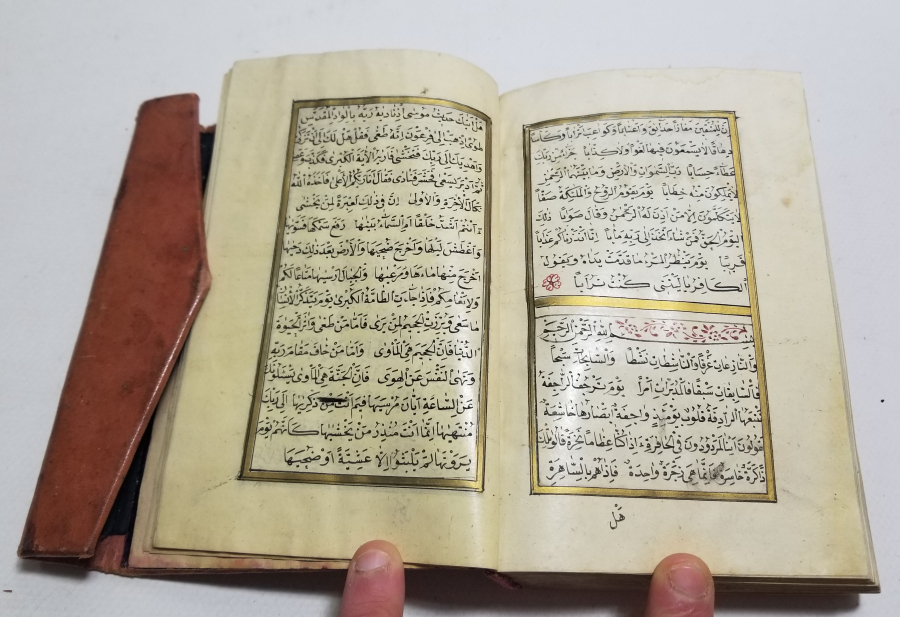 ان للمتقين مفازا حدائق واعنابا وكواعب اترابا وكاسا
دهاقا لا يسمعون فيها لغوا ولا كذابا جزاء من ربك
عطاء حسابا رب السموات والارض وما بينهما الرحمن
لا يملكون منه خطابا يوم يقوم الروح والملئكة صفا
لا يتكلمون الا من اذن له الرحمن وقال صوابا ذلك
اليوم الحق فمن شاء اتخذ الى ربه مابا انا انذرناكم عذابا
قريبا يوم ينظر المرء ما قدمت يداه ويقول
الكافر يا ليتني كنت ترابا
بسم الله الرحمن الرحيم
والنازعات غرقا والناشطات نشطا والسابحات سبحا
فالسابقات سبقا فالمدبرات امرا يوم ترجف الراجفة
تتبعها الرادفة قلوب يومئذ واجفة ابصارها خاشعة
يقولون ائنا لمردودون في الحافرة ءاذا كنا عظاما نخرة قالوا تلك
اذا كرة خاسرة فانما هي زجرة واحدة فاذا هم بالساهرة
هل
هل اتيك حديث موسى اذ ناديه ربه بالواد المقدس
طوى اذهب الى فرعون انه طغى فقل هل لك الى ان تزكى
واهديك الى ربك فتخشى فاريه الاية الكبرى فكذب وعصى
ثم ادبر يسعى فحشر فنادى فقال انا ربكم الاعلى فاخذه الله
نكال الاخرة والاولى ان في ذلك لعبرة لمن يخشى
ءانتم اشد خلقا ام السماء بنيها رفع سمكها فسويها
واغطش ليلها واخرج ضحيها والارض بعد ذلك دحيها
اخرج منها ماءها ومرعيها والجبال ارسيها متاعا لكم
ولانعامكم فاذا جاءت الطامة الكبرى يوم يتذكر الانسان
ما سعى وبرزت الجحيم لمن يرى فاما من طغى واثر الحيوة
الدنيا فان الجحيم هي الماوى واما من خاف مقام ربه
ونهى النفس عن الهوى فان الجنة هي الماوى يسئلونك
عن الساعة ايان مرسيها فيم انت من ذكريها الى ربك
منتهيها انما انت منذر من يخشيها كانهم يوم
يرونها لم يلبثوا الا عشية او ضحيها